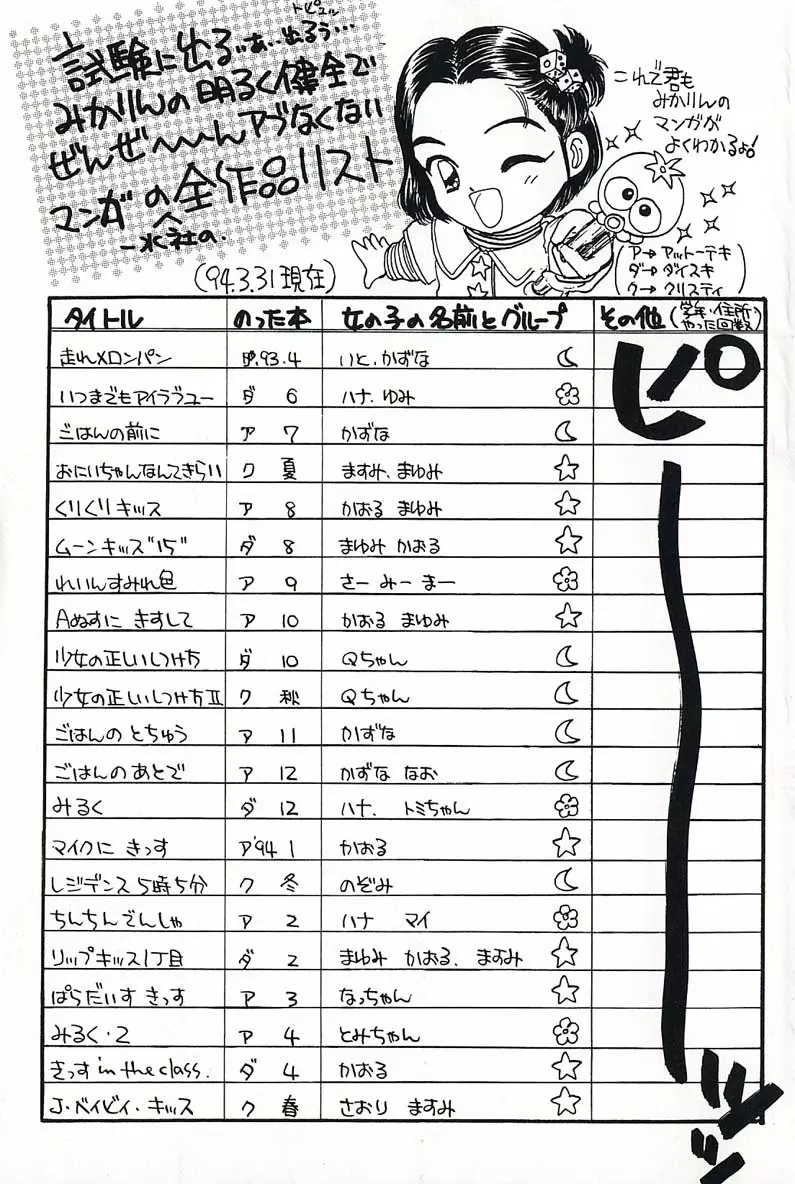 トピュル
試験に出るぅぁ…出るぅ…
みかりんの明るく健全で
ぜんぜ〜〜んアブなくない
マンガの全作品リスト
一水社の.
('94.3.31現在)
これで君も
みかりんの
マンガが
よくわかるよ!
ア→アットーテキ
ダ→ダイスキ
ク→クリスティ
タイトル のった本 女の子の名前とグループ その他(学年・住所・やった回数)
走れメロンパン '93.4 いと、かずな
いつまでもアイラブユー ダ 6 ハナ.ゆみ
ごはんの前に ア 7 かずな
おにいちゃんなんてきらい ク 夏 ますみ.まゆみ
くりくりキッス ア 8 かおる まゆみ
ムーンキッス"15" ダ 8 まゆみ かおる
れいんすみれ色 ア 9 さー みー まー
Aぬすに きすして ア 10 かおる まゆみ
少女の正しいしつけ方 ダ 10 Qちゃん
少女の正しいしつけ方Ⅱ ク 秋 Qちゃん
ごはんの とちゅう ア 11 かずな
ごはんのあとで ア 12 かずな なお
みるく ダ 12 ハナ. トミちゃん
マイクに きっす ア '94 1 かおる
レジデンス5時5分 ク 冬 のぞみ
ちんちんでんしゃ ア 2 ハナ マイ
リップキッス1丁目 ダ 2 まゆみ かおる. ますみ
ぱらだいす きっす ア 3 なっちゃん
みるく・2 ア 4 とみちゃん
きっす in the class. ダ 4 かおる
J・ベイビィ・キッス ク 春 さおり ますみ
ピーッッ